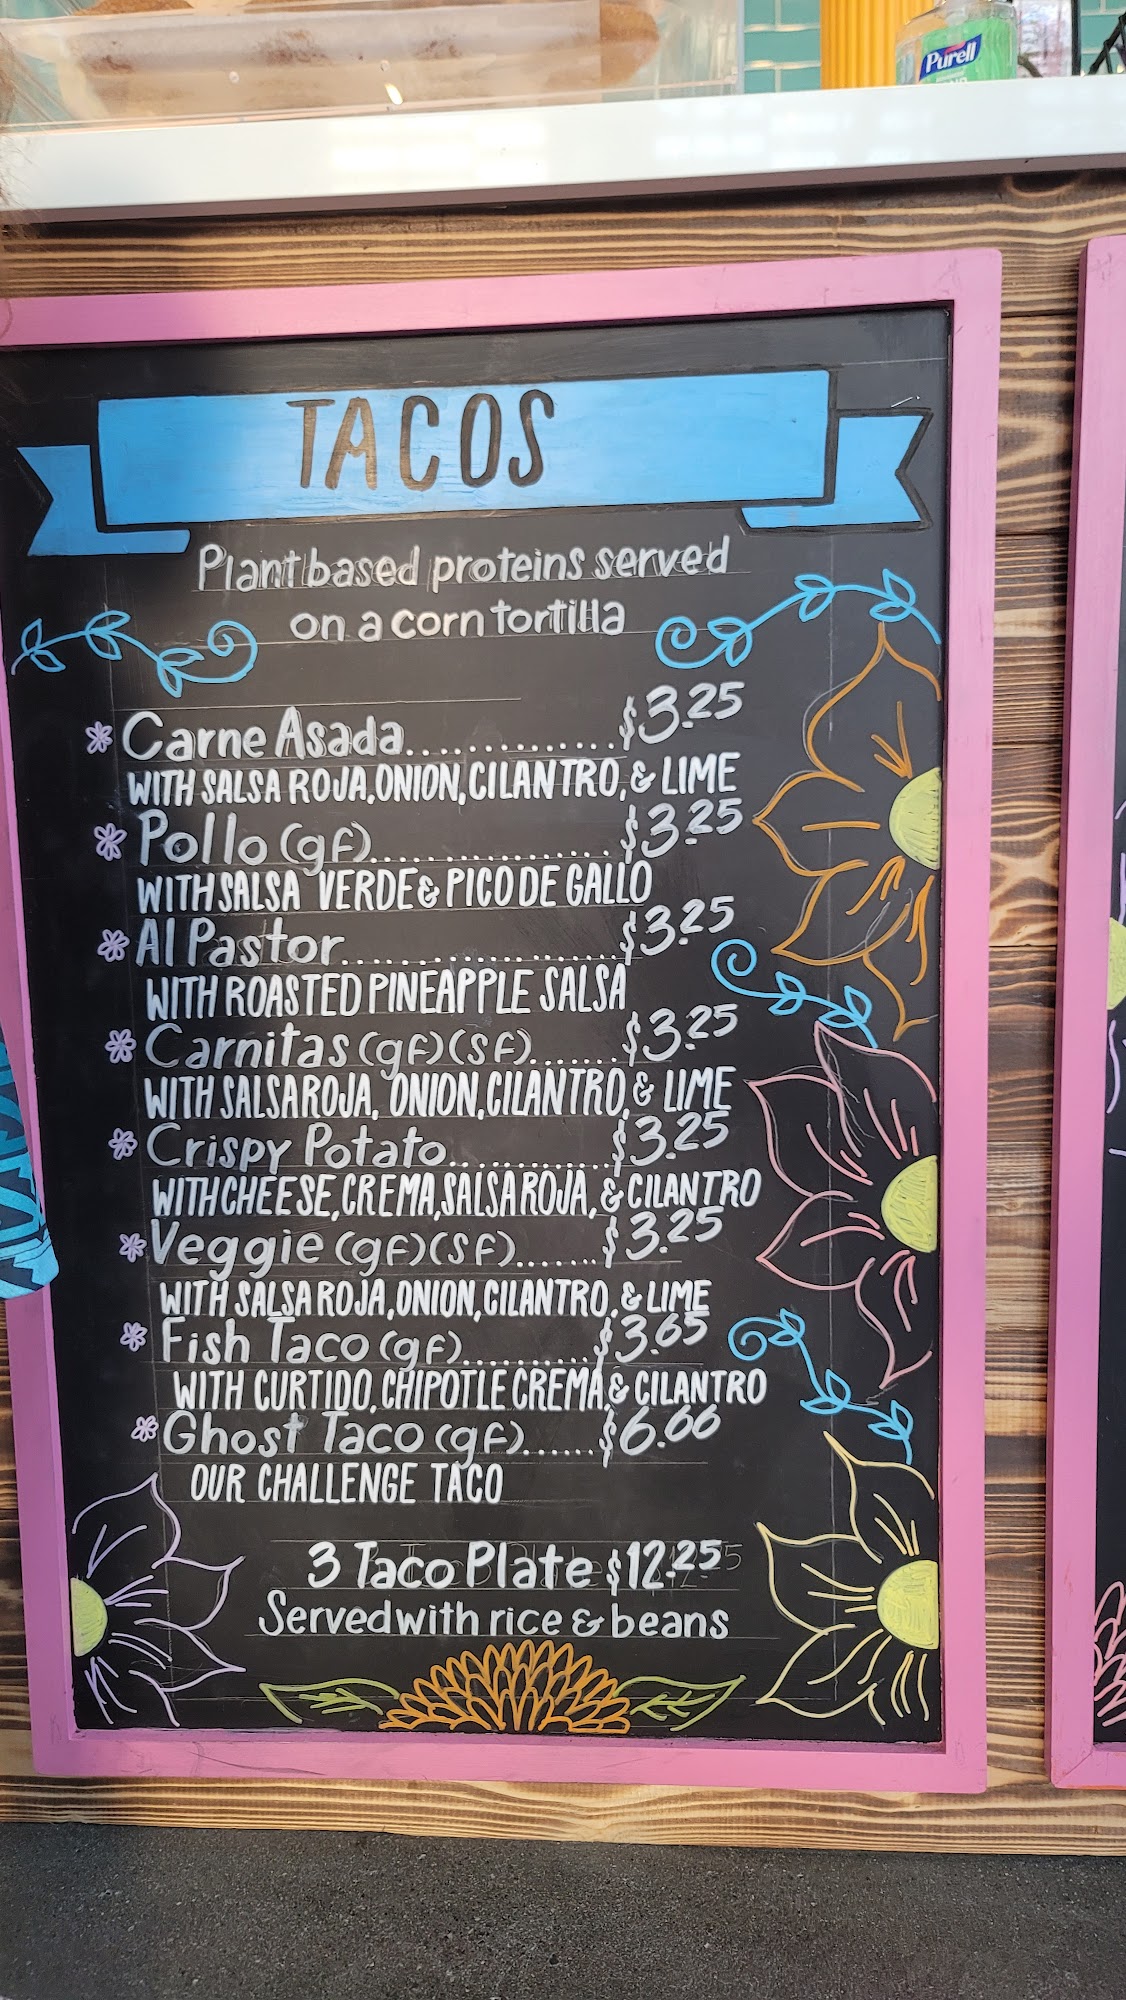 Purell
TACOS
Plant based proteins served
on a corn tortilla
Carne Asada..............$3.25
WITH SALSA ROJA, ONION, CILANTRO, & LIME
Pollo (gf)..................$3.25
WITH SALSA VERDE & PICO DE GALLO
Al Pastor.....................$3.25
WITH ROASTED PINEAPPLE SALSA
Carnitas (gf)(sf).......$3.25
WITH SALSA ROJA, ONION, CILANTRO, & LIME
Crispy Potato............$3.25
WITH CHEESE, CREMA, SALSA ROJA, & CILANTRO
Veggie (gf)(sf).......$3.25
WITH SALSA ROJA, ONION, CILANTRO, & LIME
Fish Taco (gf)..........$3.65
WITH CURTIDO, CHIPOTLE CREMA & CILANTRO
Ghost Taco (gf)......$6.66
OUR CHALLENGE TACO
3 Taco Plate $12.25
Served with rice & beans